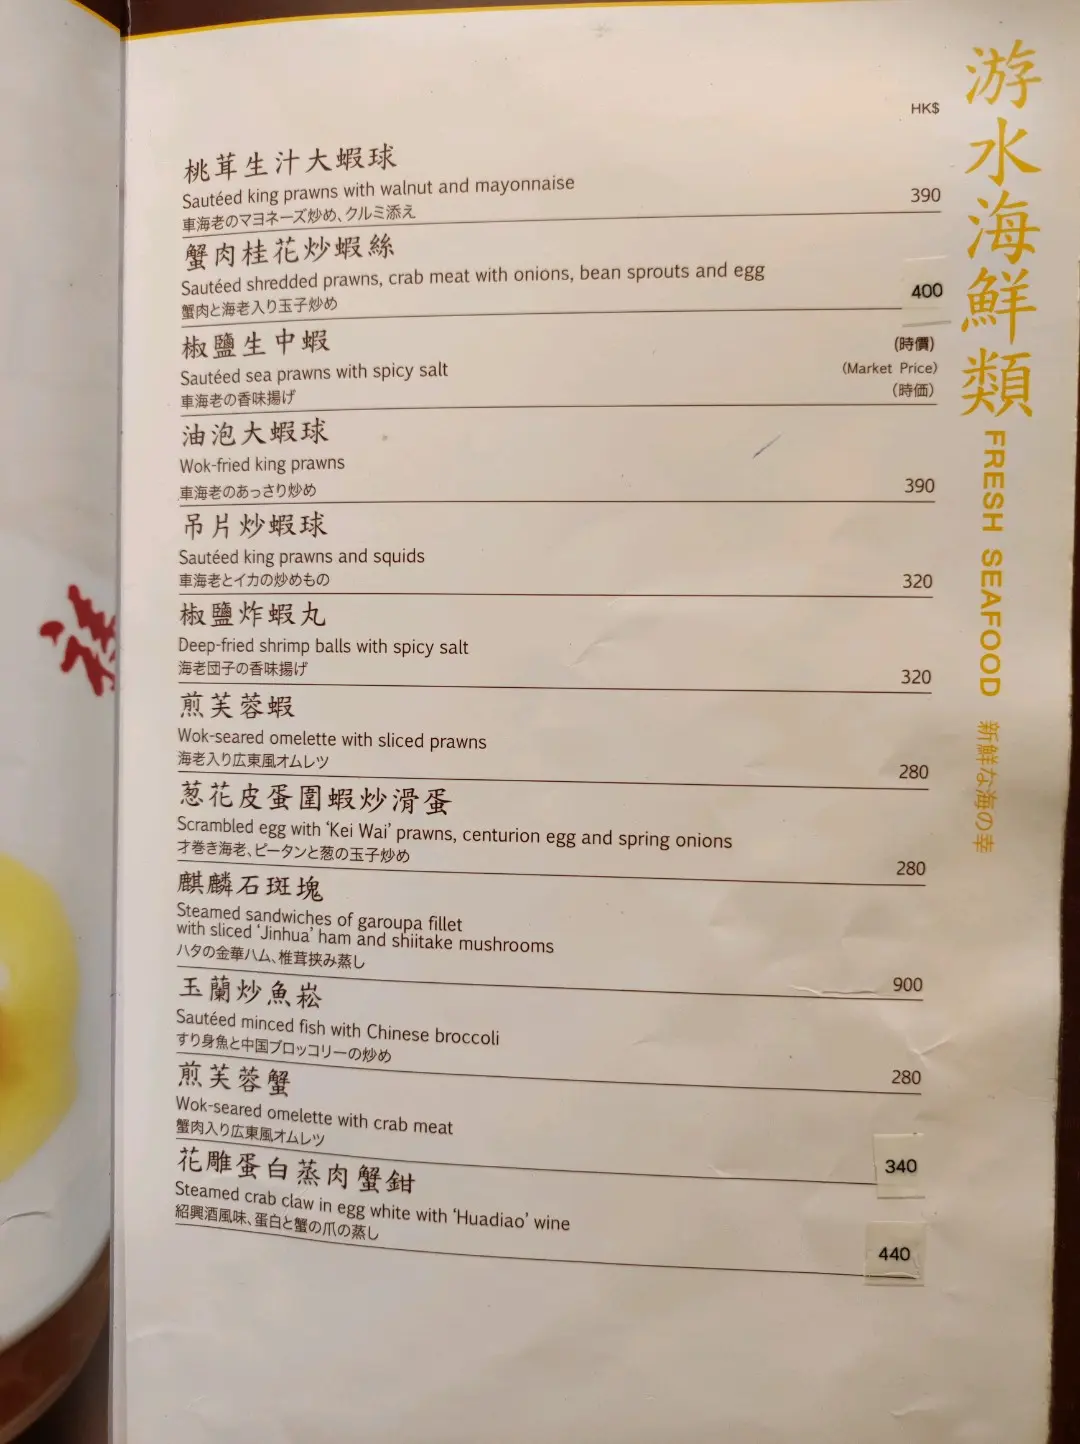 HK$
桃茸生汁大蝦球
Sautéed king prawns with walnut and mayonnaise
車海老のマヨネーズ炒め、クルミ添え
390
蟹肉桂花炒蝦絲
Sautéed shredded prawns, crab meat with onions, bean sprouts and egg
蟹肉と海老入り玉子炒め
400
椒鹽生中蝦
Sautéed sea prawns with spicy salt
車海老の香味揚げ
(時價)
(Market Price)
(時価)
油泡大蝦球
Wok-fried king prawns
車海老のあっさり炒め
390
吊片炒蝦球
Sautéed king prawns and squids
車海老とイカの炒めもの
320
椒鹽炸蝦丸
Deep-fried shrimp balls with spicy salt
海老団子の香味揚げ
320
煎芙蓉蝦
Wok-seared omelette with sliced prawns
海老入り広東風オムレツ
280
葱花皮蛋圍蝦炒滑蛋
Scrambled egg with ‘Kei Wai’ prawns, centurion egg and spring onions
才巻き海老、ピータンと葱の玉子炒め
280
麒麟石斑塊
Steamed sandwiches of garoupa fillet
with sliced ‘Jinhua’ ham and shiitake mushrooms
ハタの金華ハム、椎茸挟み蒸し
900
玉蘭炒魚崧
Sautéed minced fish with Chinese broccoli
すり身魚と中国ブロッコリーの炒め
280
煎芙蓉蟹
Wok-seared omelette with crab meat
蟹肉入り広東風オムレツ
340
花雕蛋白蒸肉蟹鉗
Steamed crab claw in egg white with ‘Huadiao’ wine
紹興酒風味、蛋白と蟹の爪の蒸し
440
游水海鮮類
FRESH SEAFOOD
新鮮な海の幸